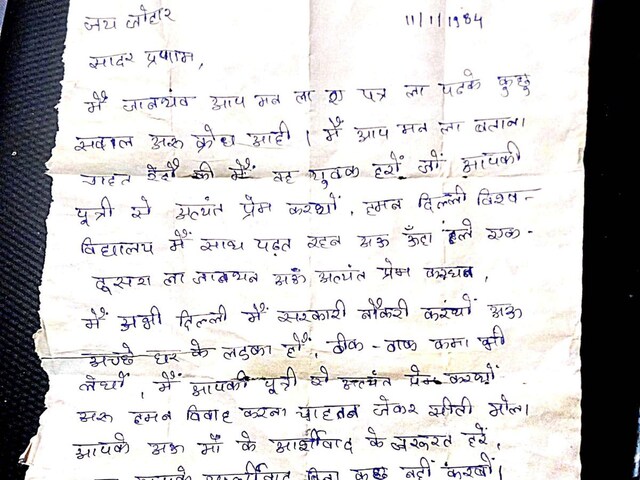 जय जोहार 11/1/1984
सादर प्रणाम,
मैं जानथंव आप मन ला ए पत्र ला पढ़के कुछु
सवाल अऊ क्रोध आही। मैं आप मन ला बताना
चाहत हौं की मैं वह युवक हरों जों आपकी
पूत्री से अत्यंत प्रेम करथों, हमन दिल्ली विश्व-
विद्यालय में साथ पढ़त रहन अऊ ऊँहा ले एक-
दूसरा ला जानथन अऊ अत्यंत प्रेम करथन,
मैं अभी दिल्ली में सरकारी नौकरी करथों अऊ
अच्छे घर के लड़का हों, ठीक-ठाक कमा भी
लेथों, मैं आपकी पूत्री से अत्यंत प्रेम करथों
अऊ हमन विवाह करना चाहतन जेकर सीती मोला
आपके अऊ माँ के आर्शीवाद के जरूरत हरे,
आपके आर्शीवाद बिना कुछ नहीं करथों।